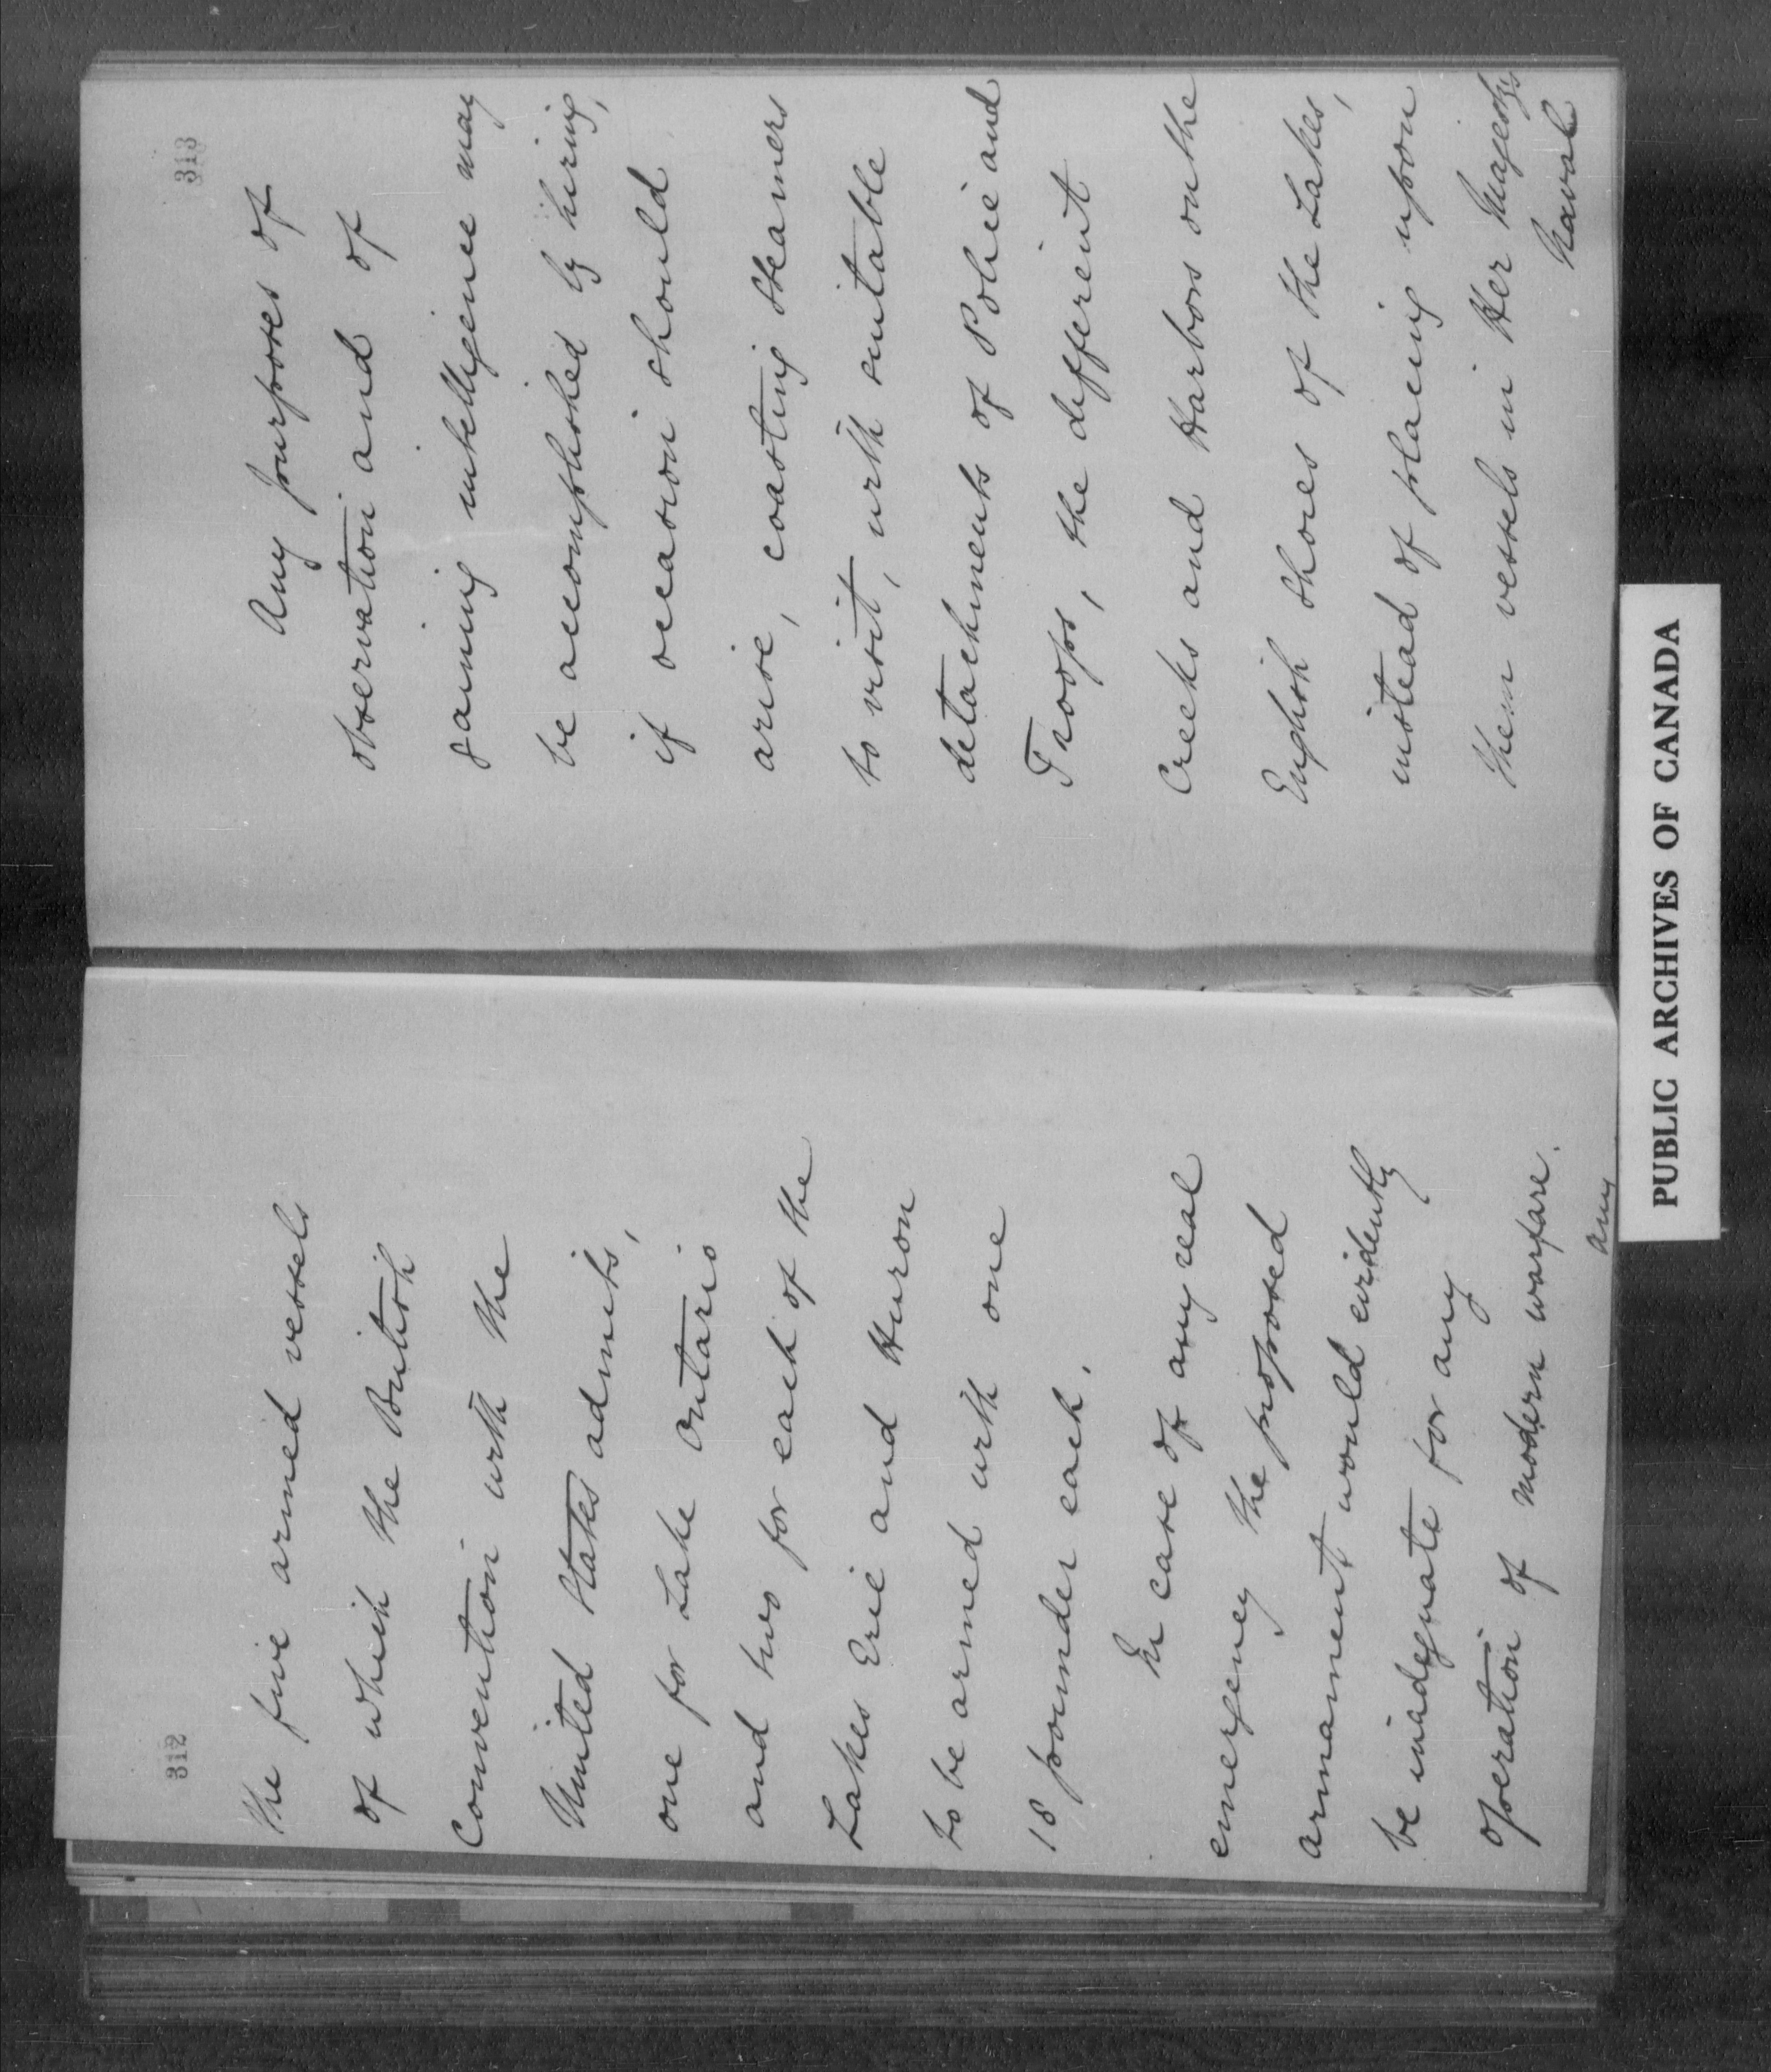 312
The five armed vessels
of which the British
Convention with the
United States admits,
one for Lake Ontario
and two for each of the
Lakes Erie and Huron
to be armed with one
18 pounder each.
In case of any real
emergency the proposed
armament would evidently
be inadequate for any
operation of modern warfare.
Any
313
Any purposes of
observation and of
gaining intelligence may
be accomplished by hiring,
if occasion should
arise, coasting steamers
to visit, with suitable
detachments of Police and
Troops, the different
Creeks and Harbors on the
English shores of the Lakes,
instead of placing upon
them vessels in Her Majesty's
Naval
PUBLIC ARCHIVES OF CANADA